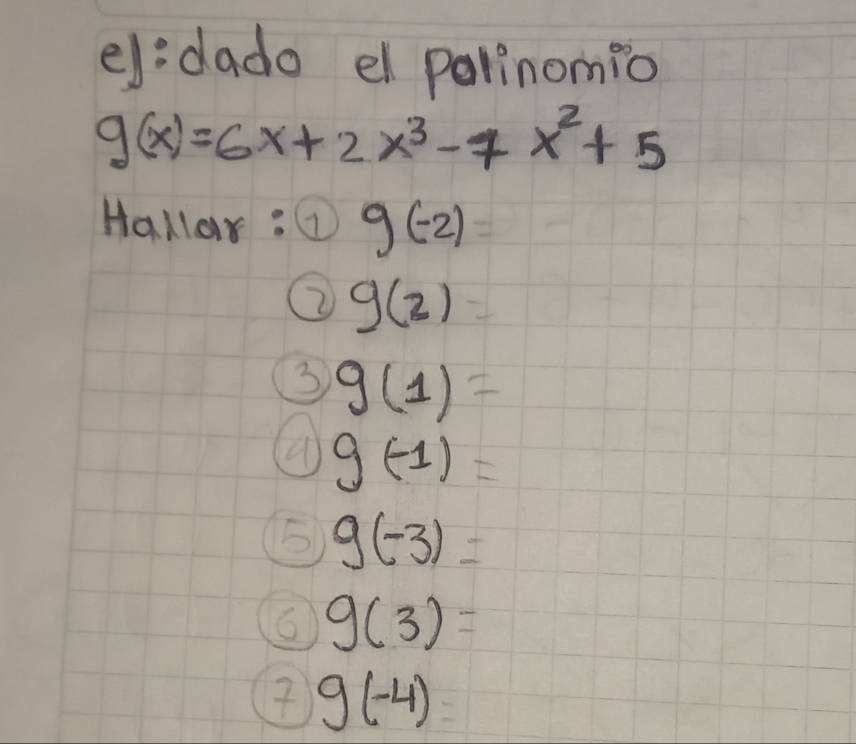 ej: dado el polinomio
g(x)=6x+2x³-7x²+5
Hallar: ① g(-2)=
② g(2)=
③ g(1)=
④ g(-1)=
⑤ g(-3)=
⑥ g(3)=
⑦ g(-4)=